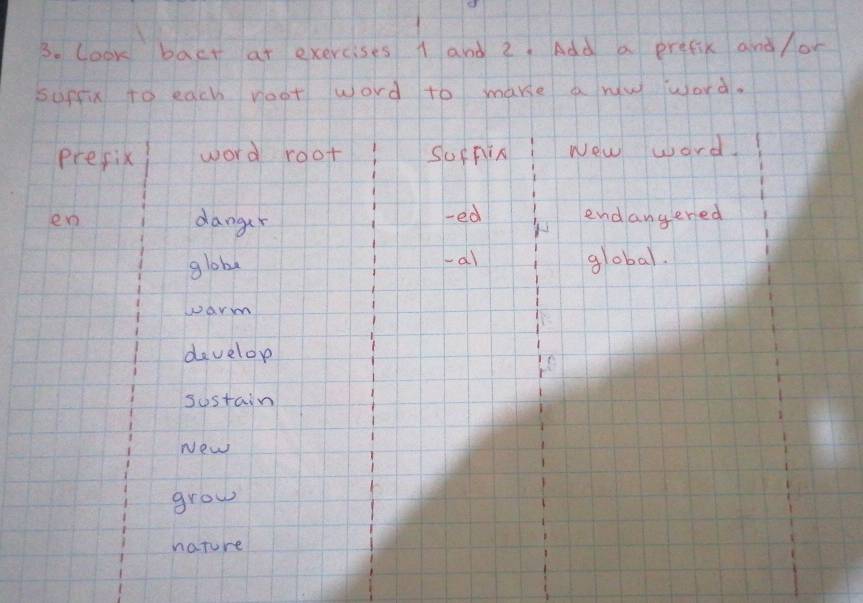 3. Look back at exercises 1 and 2. Add a prefix and/or
suffix to each root word to make a new word.
prefix word root Suffix New word.
en danger -ed endangered
globe -al global.
warm
develop
sustain
New
grow
nature